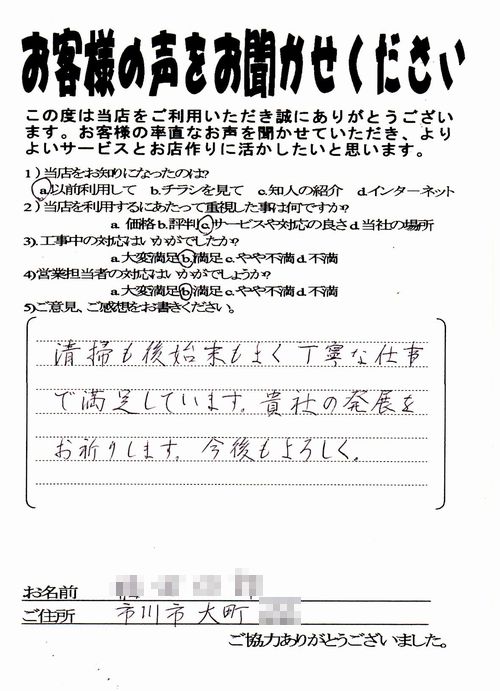 お客様の声をお聞かせください
この度は当店をご利用いただき誠にありがとうござい
ます。お客様の率直なお声を聞かせていただき、より
よいサービスとお店作りに活かしたいと思います。
1)当店をお知りになったのは?
a.以前利用して b.チラシを見て c.知人の紹介 d.インターネット
2)当店を利用するにあたって重視した事は何ですか?
a. 価格 b.評判 c.サービスや対応の良さ d 当社の場所
3).工事中の対応はいかがでしたか?
a.大変満足 b.満足 c.やや不満 d.不満
4)営業担当者の対応はいかがでしょうか?
a.大変満足 b.満足 c.やや不満 d.不満
5)ご意見、ご感想をお書きください。
清掃も後始末もよく丁寧な仕事
で満足しています。貴社の発展を
お祈りします。今後もよろしく。
お名前
ご住所 市川市大町
ご協力ありがとうございました。